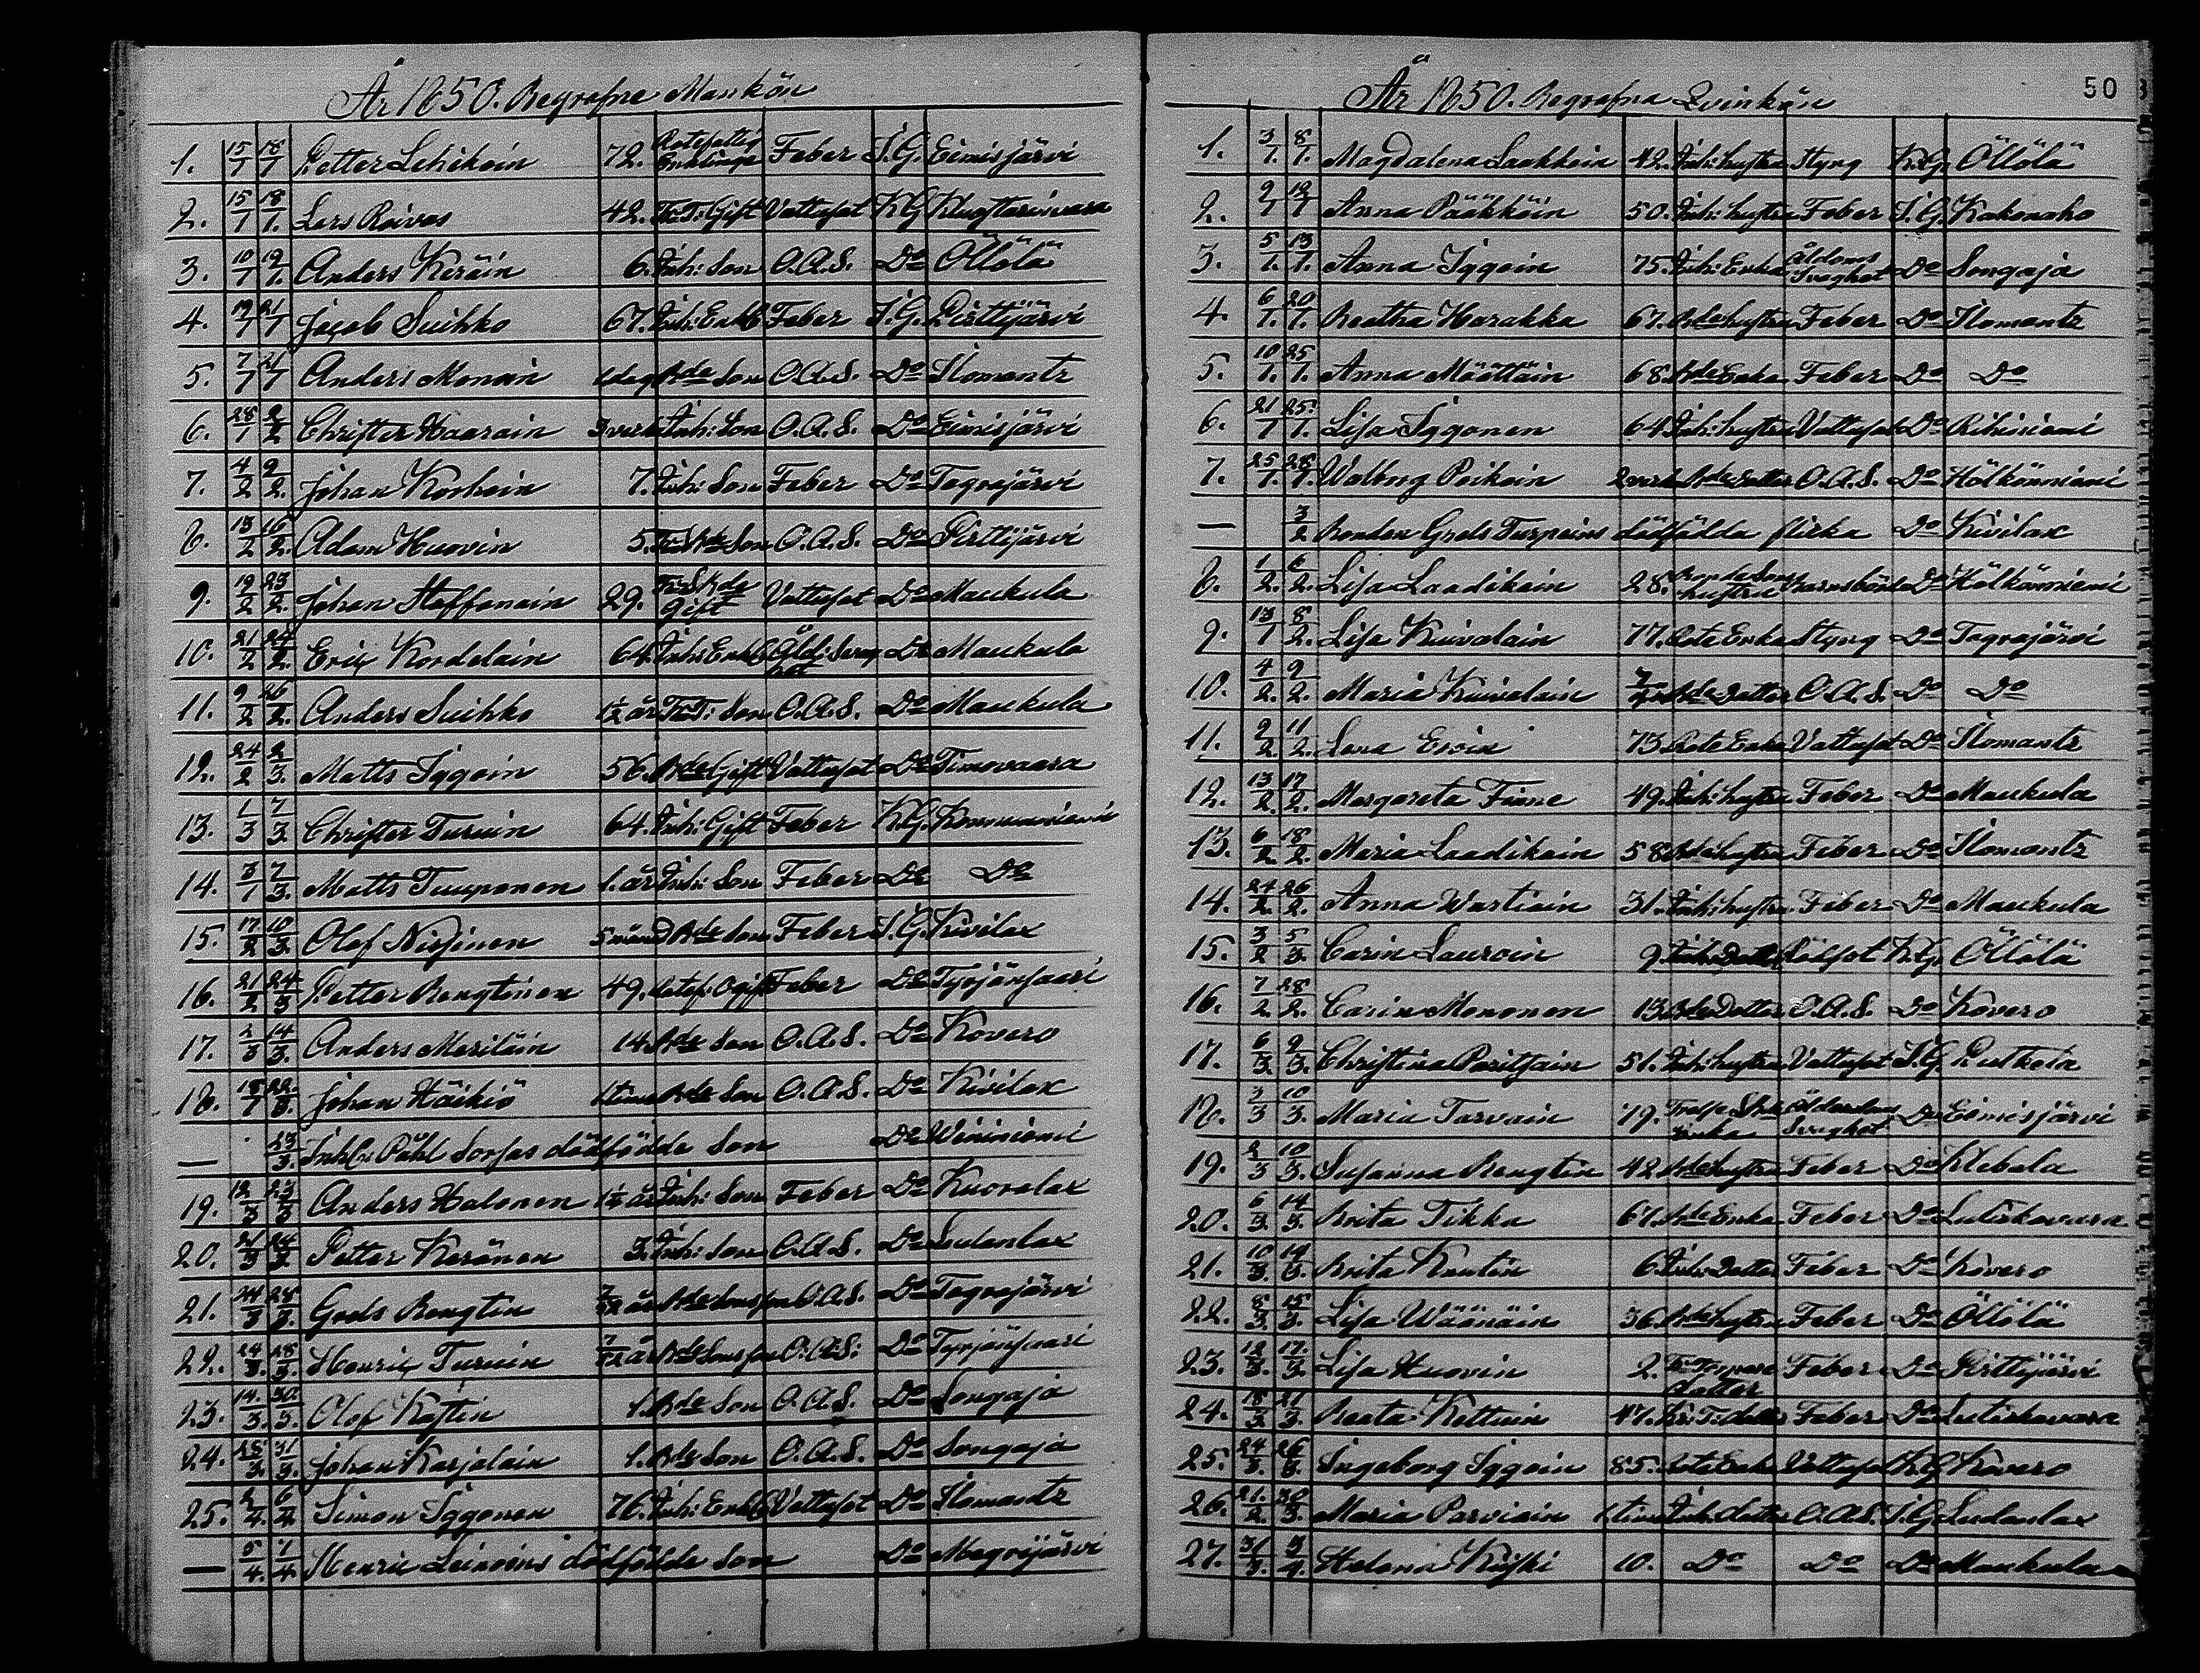 År 1850. Begrafne Mankön
1. 15/1 18/1 Petter Lehikoin 72. Rotefattig Enklinge Feber S.G. Eimisjärvi
2. 15/1 18/1. Lars Roivas 42. Gift Vattusot K.G.
3. 10/1 19/1. Anders Keräin 6. Inh: Son O.A.S. Do Öllölä
4. 19/1 21/1 Jacob Suihko 67. Inh: Enkl Feber S.G. Pirttijärvi
5. 7/1 21/1 Anders Monoin 1 dag Bde Son O.A.S. Do Ilomants
6. 28/1 2/2 Christer Haarain 3 veck Inh: Son O.A.S. Do Eimisjärvi
7. 4/2 9/2. Johan Korhoin 7. Inh: Son Feber Do Tegrajärvi
8. 13/2 16/2. Adam Huovin 5. Son O.A.S. Do Pirttijärvi
9. 19/2 23/2. Johan Steffanain 29. Gift Vattusot Do Maukula
10. 21/2 24/2. Eric Kordelain 64. Inh: Enkl Åld: Svaghet Do Maukula
11. 9/2 26/2. Anders Suihko 1 1/2 år Son O.A.S. Do Maukula
12. 24/2 2/3. Matts Iggoin 56. Bde Gift Vattusot Do Timovaara
13. 1/3 7/3 Christer Turuin 64. Inh: Gift Feber K.G.
14. 3/1 7/3. Matts Tuuponen 1. år Inh: Son Feber Do Do
15. 17/2 10/3. Olof Nissinen 5 mån Bde Son Feber S.G. Kivilax
16. 21/2 24/3 Petter Rengtinen 49. Rotef. Ogift Feber Do Tyrjänsaari
17. 2/3 14/3. Anders Meriläin 14. Bde Son O.A.S. Do Kovero
18. 15/1 22/3. Johan Häikiö 1 time Bde Son O.A.S. Do Kivilax
— 23/3. Inh: Påhl Sorsas dödfödde Son Do Wininiemi
19. 12/3 23/3 Anders Halonen 1 1/2 år Inh: Son Feber Do Kuoralax
20. 21/3 24/3. Petter Keränen 3. Inh: Son O.A.S. Do Sudanlax
21. 24/3 28/3. Gods Rengtin 7/12 år Bde Sonson O.A.S. Do Tegrajärvi
22. 24/3. 28/3. Henric Turuin 7/12 år Bde Sonson O.A.S. Do Tyrjänsaari
23. 14/3. 30/3. Olof Kojtin 1. Bde Son O.A.S. Do Songaja
24. 28/3. 31/3. Johan Karjalain 1. Bde Son O.A.S. Do Songaja
25. 2/4. 6/4. Simon Iggonen 76. Inh: Enkl Vattusot Do Ilomants
— 5/4. 7/4. Henric Leinoins dödfödde Son Do Megrijärvi
50
År 1850. Begrafna Qvinkön
1. 3/1. 8/1. Magdalena Laakkoin 42. Inh: hustru Styng K.G. Öllölä
2. 9/1 12/1 Anna Pääkköin 50. Inh: hustru Feber S.G. Kakonaho
3. 5/1. 13/1. Anna Iggoin 75. Inh: Enka Åldoms Svaghet Do Songaja
4. 6/1. 20/1. Beatha Harakka 67. Bde hustru Feber Do Ilomants
5. 10/1. 25/1. Anna Määttäin 68. Bde Enka Feber Do Do
6. 21/1 25/1. Lisa Iggonen 64. Inh: hustru Vattusot Do Riihiniemi
7. 25/1. 28/1. Walborg Poikoin 2 veck Bde dotter O.A.S. Do Hölkönniemi
— 3/2 Bonden Gods Turpeins dödfödda flicka Do Kivilax
8. 1/2. 6/2. Lisa Laadikain 28. Bonde Sons hustru Barnsbörd Do Hölkönniemi
9. 13/1 8/2. Lisa Kuivalain 77. Rote Enka Styng Do Tegrajärvi
10. 4/2. 9/2. Maria Kuivalain Bde dotter O.A.S. Do Do
11. 9/2. 11/2. Lena Eroin 73. Rote Enka Vattusot Do Ilomants
12. 13/2. 17/2. Margareta Finne 49. Inh: hustru Feber Do Maukula
13. 6/2. 18/2. Maria Laadikain 58. Bde hustru Feber Do Ilomants
14. 24/2. 26/2. Anna Wartiain 31. Inh: hustru Feber Do Maukula
15. 3/2 5/3. Carin Lauroin 9. Inh: Dotter Rödsot K.G. Öllölä
16. 7/2. 28/2. Carin Mononen 13. Bde Dotter O.A.S. Do Kovero
17. 6/3. 9/3. Christina Puritsain 51. Inh: hustru Vattusot S.G. Putkela
18. 3/3 10/3. Maria Tarvain 79. Enka Ålderdoms Svaghet Do Eimisjärvi
19. 2/3 10/3. Susanna Rengtin 42. Bde hustru Feber Do Klebela
20. 6/3. 14/3. Brita Tikka 67. Bde Enka Feber Do Lutiskavaara
21. 10/3. 14/3. Brita Kautin 6. Inh: Dotter Feber Do Kovero
22. 8/3. 15/3. Lisa Wäänäin 36. Bde hustru Feber Do Öllölä
23. 12/3. 17/3. Lisa Huovin 2. dotter Feber Do Pirttijärvi
24. 18/3 21/3. Beata Kettuin 47. Feber Do Lutiskavaara
25. 24/3. 26/3. Ingeborg Iggoin 85. Rote Enka Vattusot K.G. Kovero
26. 21/2. 30/3. Maria Parviain 1 time Inh: dotter O.A.S. S.G. Sudanlax
27. 31/3. 3/4. Helena Kuiski 10. Do Do Do Maukula